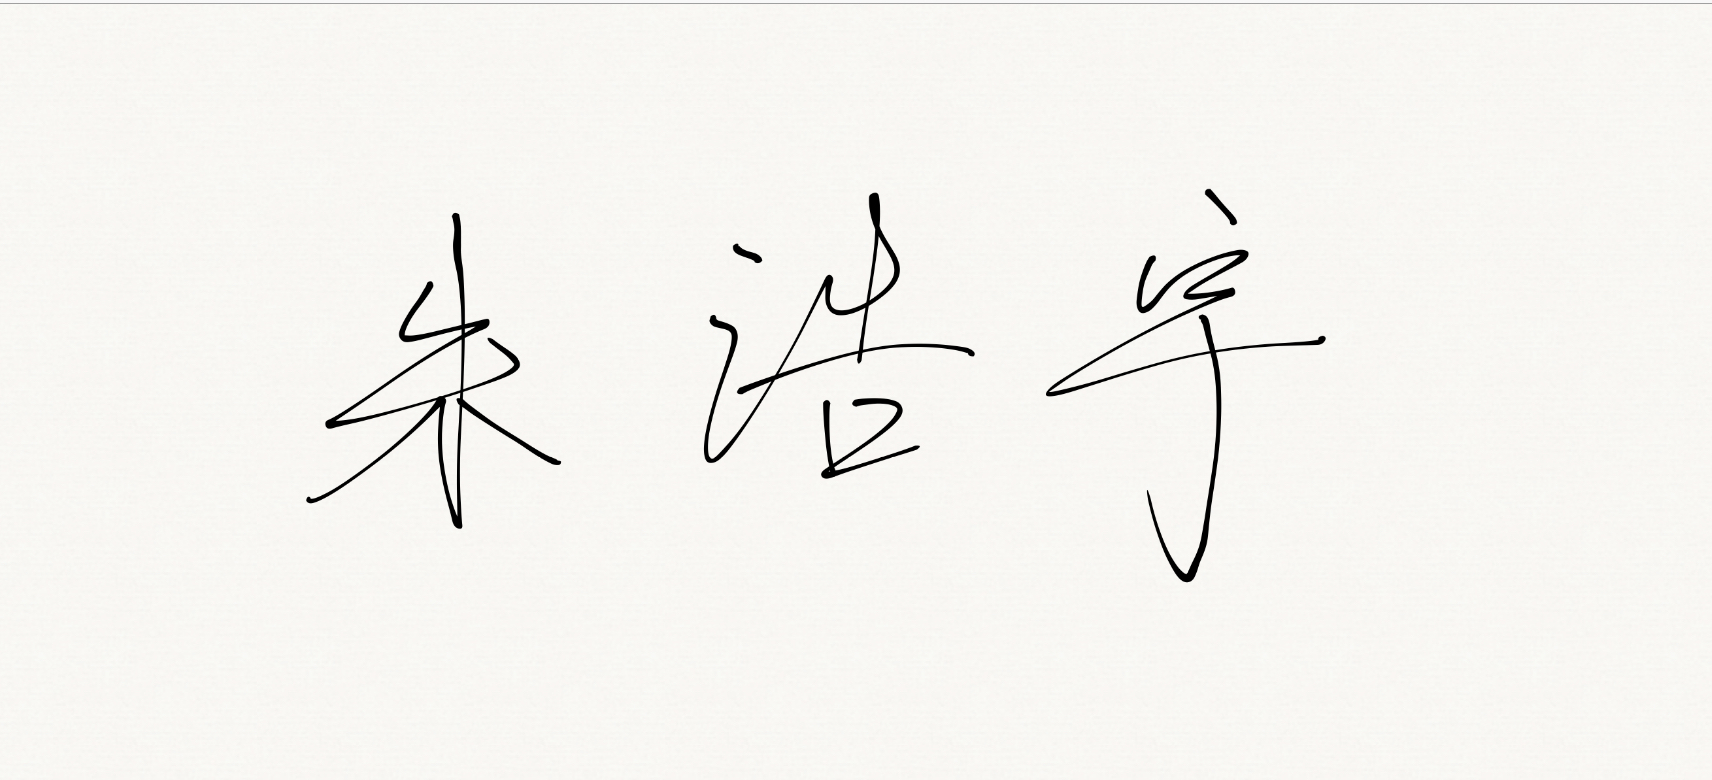 朱浩宇